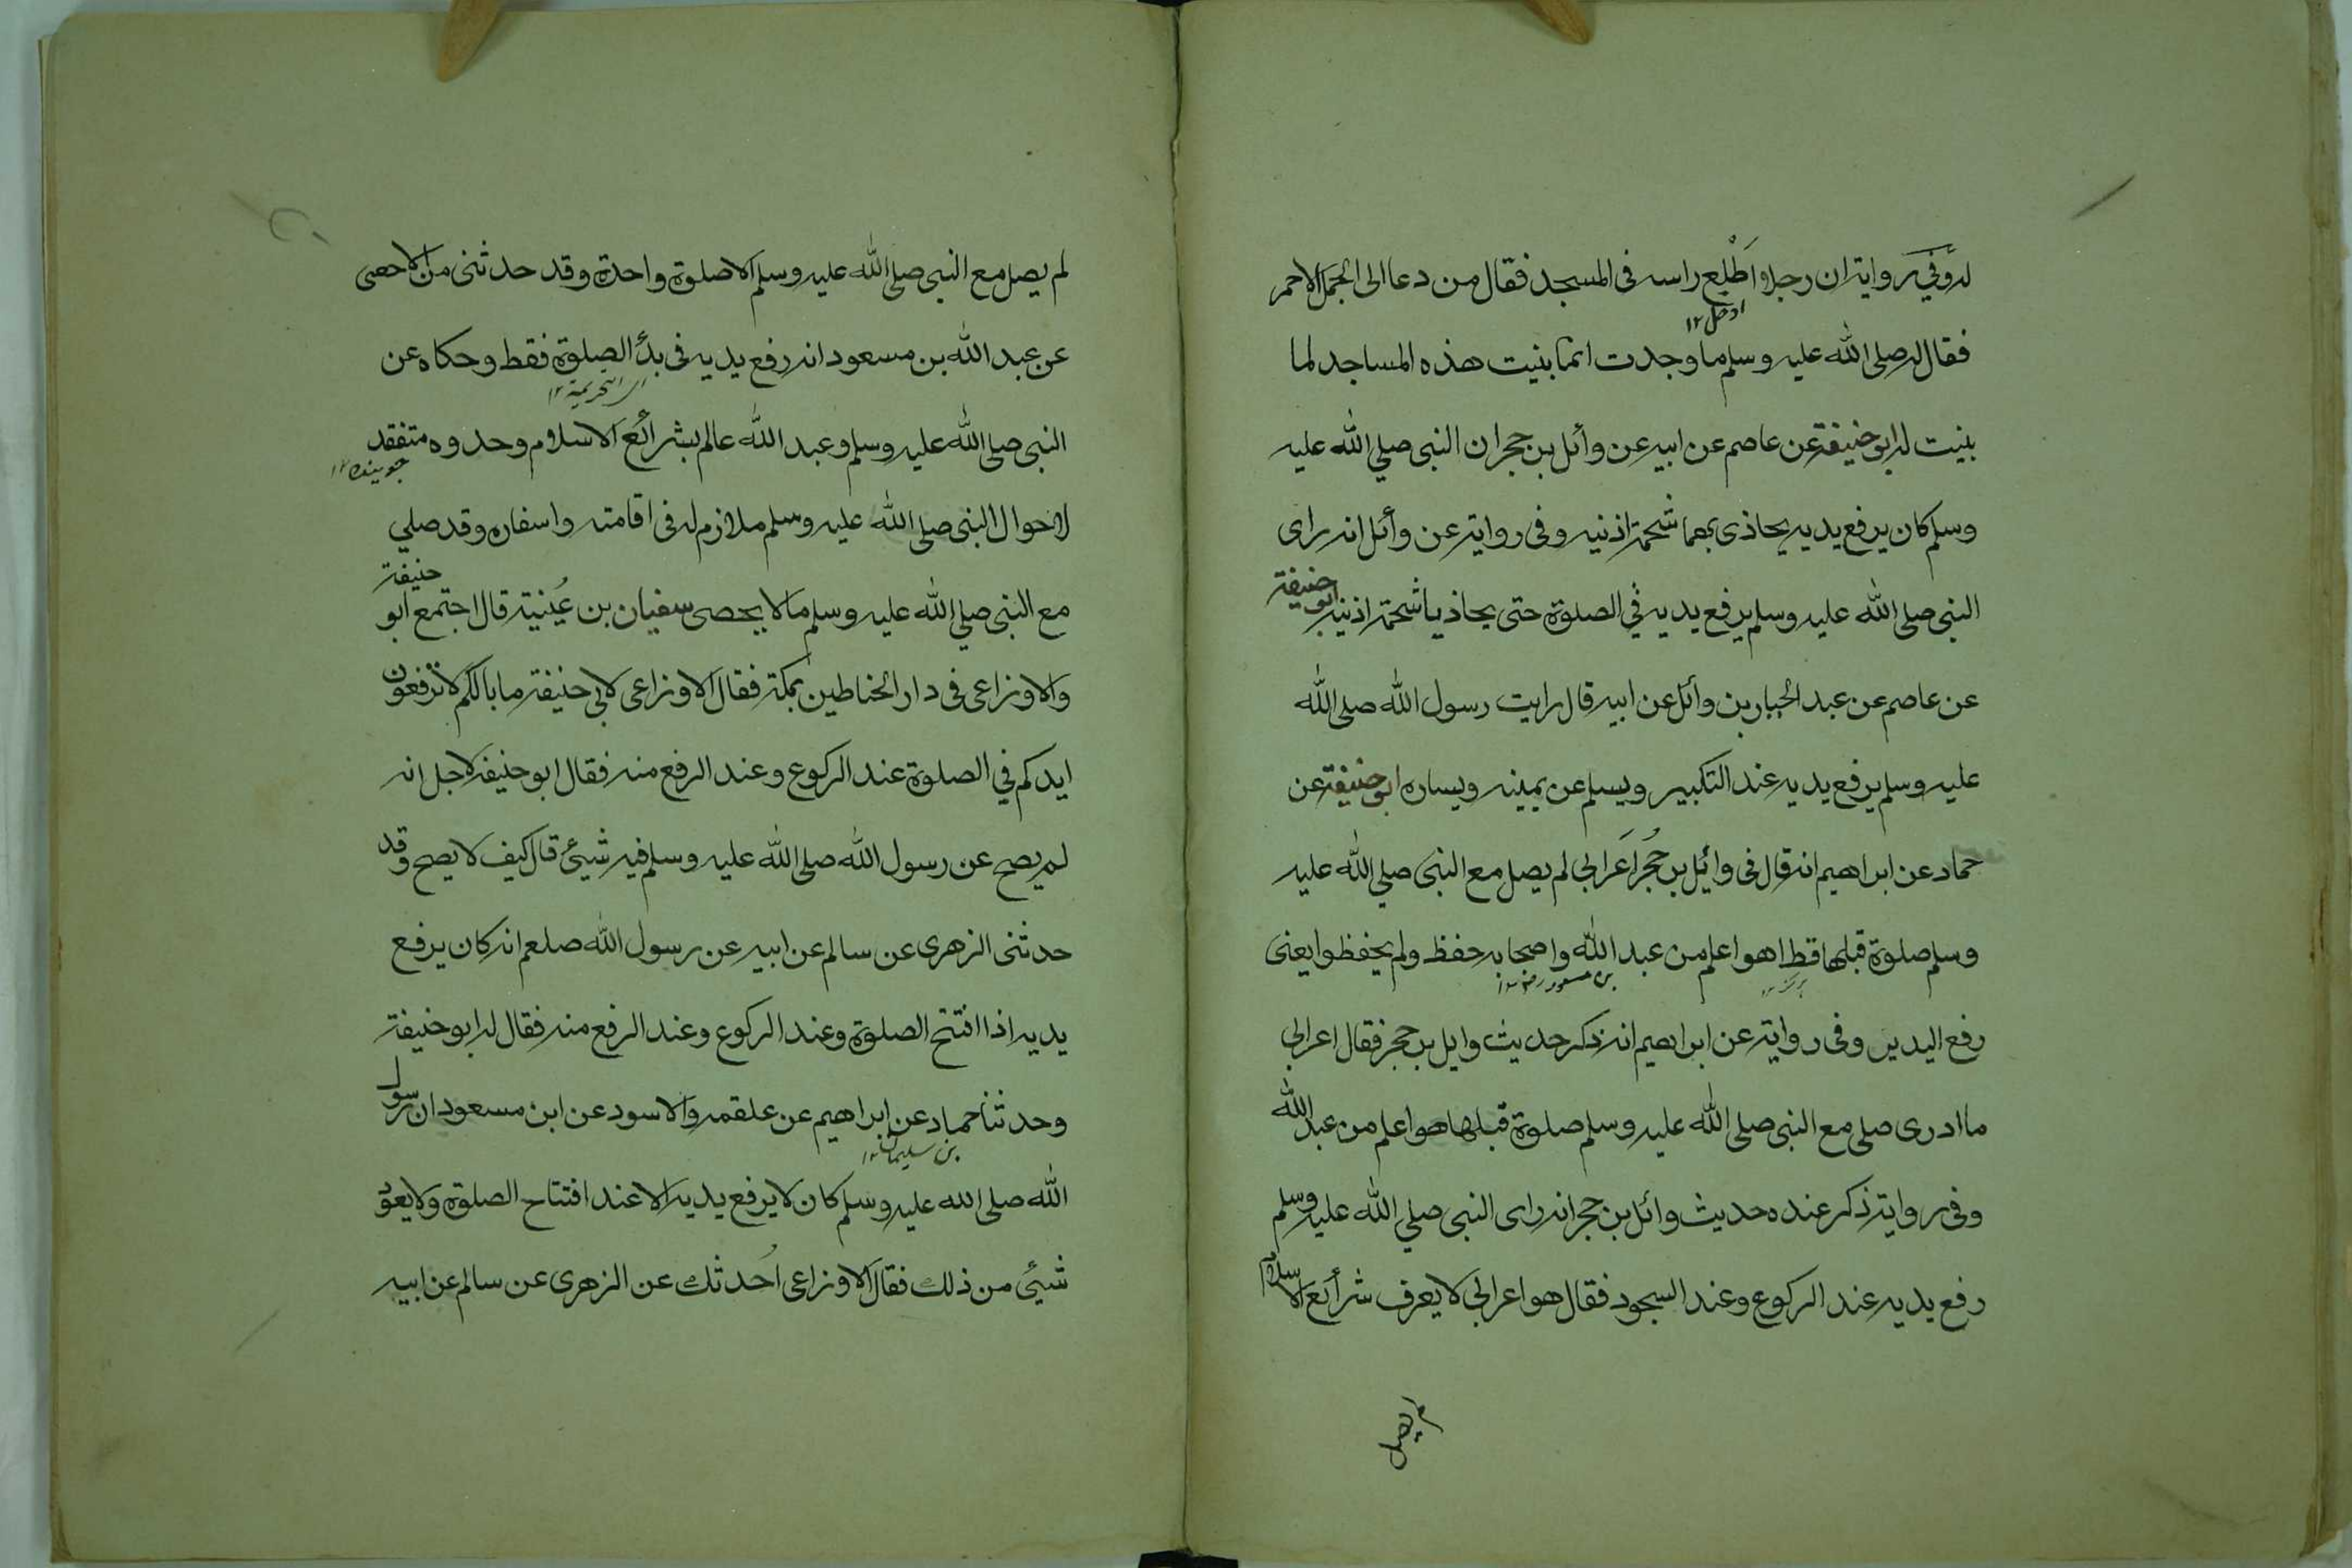 له وفي رواية ان رجلا اَطْلع راسه فى المسجد فقال من دعا الى الجمل الاحمر
ادخل ١٢
فقال له صلى الله عليه وسلم ما وجدت انما بنيت هذه المساجد لما
بنيت له ابو حنيفة عن عاصم عن ابيه عن وأئل بن حجر ان النبى صلي الله عليه
وسلم كان يرفع يديه يحاذى بهما شحمة اذنيه وفى رواية عن وأئل انه راى
النبى صلى الله عليه وسلم يرفع يديه في الصلوة حتى يحاذيا شحمة اذنيه ابو حنيفة
عن عاصم عن عبد الجبار بن وأئل عن ابيه قال رايت رسول الله صلى الله
عليه وسلم يرفع يديه عند التكبير ويسلم عن يمينه ويساره ابو حنيفة عن
حماد عن ابراهيم انه قال فى وائيل بن حُجر اَعرابي لم يصل مع النبى صلي الله عليه
وسلم صلوة قبلها قط اهو اعلم من عبد الله واصحابه حفظ ولم يحفظوا يعنى
بن مسعود رض ١٢
رفع اليدين وفى رواية عن ابراهيم انه ذكر حديث وايل بن حجر فقال اعرابي
ما ادرى صلى مع النبى صلى الله عليه وسلم صلوة قبلها هو اعلم من عبد الله
وفى رواية ذكر عنده حديث وائل بن حجر انه راى النبى صلي الله عليه وسلم
رفع يديه عند الركوع وعند السجود فقال هو اعرابي لا يعرف شرأئع الاسلام
لم يصل
لم يصل مع النبى صلى الله عليه وسلم الا صلوة واحدة وقد حدثنى من لا احصى
عن عبد الله بن مسعود انه رفع يديه فى بدأ الصلوة فقط وحكاه عن
اى التحريمة ١٢
النبى صلى الله عليه وسلم وعبد الله عالم بشرأئع الاسلام وحدوه متفقد
جوينده ١٢
لاحوال النبى صلى الله عليه وسلم ملازم له فى اقامته واسفاره وقد صلي
مع النبى صلي الله عليه وسلم ما لا يحصى سفيان بن عُينية قال اجتمع ابو حنيفة
والاوزاعى فى دار الحناطين بمكة فقال الاوزاعى لابي حنيفة ما بالكم لا ترفعون
ايدكم في الصلوة عند الركوع وعند الرفع منه فقال ابو حنيفة لاجل انه
لم يصح عن رسول الله صلى الله عليه وسلم فيه شيئ قال كيف لا يصح وقد
حدثنى الزهرى عن سالم عن ابيه عن رسول الله صلعم انه كان يرفع
يديه اذا افتتح الصلوة وعند الركوع وعند الرفع منه فقال له ابو حنيفة
وحدثنا حماد عن ابراهيم عن علقمه والاسود عن ابن مسعود ان رسول
بن سليمان ١٢
الله صلى الله عليه وسلم كان لا يرفع يديه الا عند افتتاح الصلوة ولا يعود
شيئ من ذلك فقال الاوزاعى اُحدثك عن الزهرى عن سالم عن ابيه